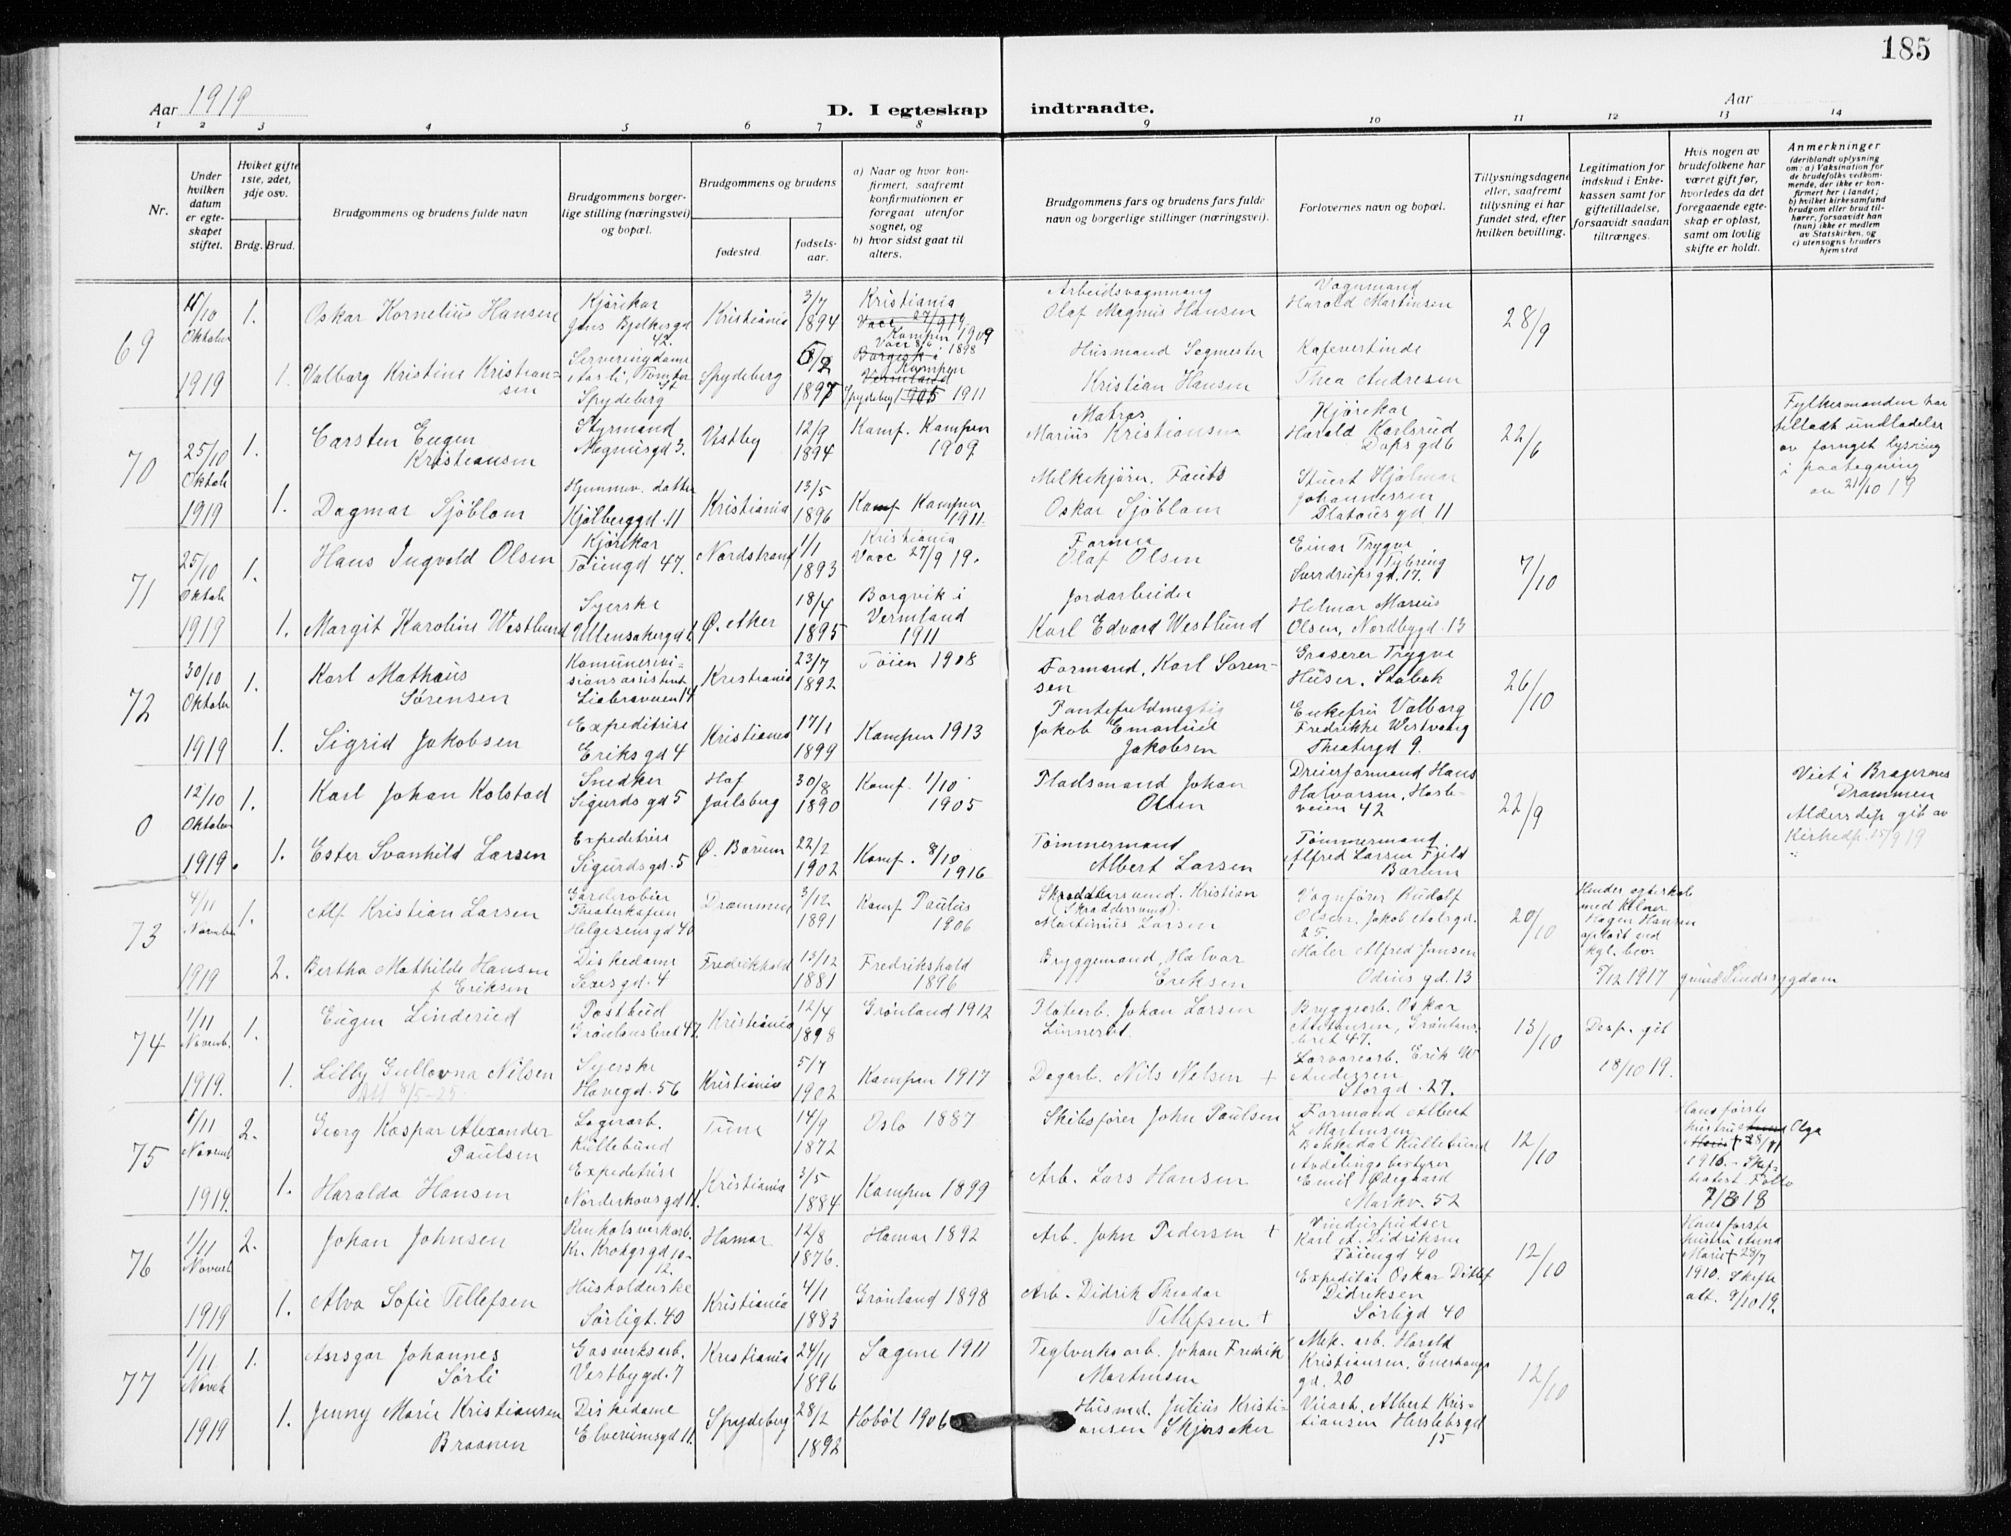 185
Aar 1919
D. I egteskap indtraadte.
Aar
1 2 3 4 5 6 7 8 9 10 11 12 13 14
Nr.
Under hvilken datum er egteskapet stiftet.
Hvilket gifte 1ste, 2det, 3dje osv.
Brdg. Brud.
Brudgommens og brudens fulde navn
Brudgommens borgerlige stilling (næringsvei) og bopæl.
Brudgommens og brudens
fødested.
fødselsaar.
a) Naar og hvor konfirmert, saafremt konfirmationen er foregaat utenfor sognet, og
b) hvor sidst gaat til alters.
Brudgommens fars og brudens fars fulde navn og borgerlige stillinger (næringsvei).
Forlovernes navn og bopæl.
Tillysningsdagene eller, saafremt tillysning ei har fundet sted, efter hvilken bevilling.
Legitimation for indskud i Enkekassen samt for giftetilladelse, forsaavidt saadan tiltrænges.
Hvis nogen av brudefolkene har været gift før, hvorledes da det foregaaende egteskap er opløst, samt om lovlig skifte er holdt.
Anmerkninger (deriblandt oplysning om: a) Vaksination for de brudefolks vedkommende, der ikke er konfirmert her i landet; b) hvilket kirkesamfund brudgom eller brud tilhører, forsaavidt han (hun) ikke er medlem av Statskirken, og c) utensogns bruders hjemsted
69 11/10 Oktober 1919
1. Oskar Kornelius Hansen Kjørekar Jens Bjelkesgd 42. Kristiania 3/7 1894 Kristiania Vacc 27/9 19. Kampen 1909
Arbeidsvognmand Olaf Magnus Hansen Vognmand Harald Martinsen 28/9
1. Valborg Kristine Kristiansen Serveringsdame Spydeberg Spydeberg 8/2 1897 Kampen Vermland Spydeberg 1905 1911
Husmand Sagmester Kristian Hansen Kafevertinde Thea Andresen
70 25/10 Oktob 1919
1. Carsten Eugen Kristiansen Styrmand Magnusgd 3. Vestby 12/9 1894 Konf. Kampen 1909
Matros Marius Kristiansen Kjørekar Harald Karlsrud Daps gd 6 22/6
Fylkesmanden har tilladt undladelse av fornyet lysning i paategning av 21/10 19
1. Dagmar Sjöblom Hjemmev. datter Kjølberggd. 11 Kristiania 13/5 1896 Konf Kampen 1911.
Melkekjører. Oskar Sjöblom Stuert Hjalmar Johannessen Platousgd 11
71 25/10 Oktob 1919
1. Hans Ingvald Olsen Kjørekar Tøiengd 47. Nordstrand 1/1 1893 Kristiania Vacc 27/9 19.
Former Olaf Olsen Einar Trygve Sverdrupsgd. 17. 7/10
1. Margit Karoline Westlund Syerske Ullensakergd 6 Ø. Aker 18/4 1895 Borgvik i Vermland 1911
Jordarbeider Karl Edvard Westlund Helmar Marius Olsen, Nordbygd. 13
72 30/10 Oktober 1919
1. Karl Mathæus Sørensen Komunerevisionsassistent Liabraveien 14 Kristiania 23/7 1892 Tøien 1908
Formand, Karl Sørensen Graverer Trygve Huser. Stabæk 26/10
1. Sigrid Jakobsen Expeditrise Eriks gd 4 Kristiania 17/1 1899 Kampen 1913
Pantefuldmegtig Jakob Emanuel Jakobsen Enkefru Valborg Fredrikke Westvang Theatergd 9.
0 12/10 Oktober 1919.
1. Karl Johan Kolstad Snedker Sigurds gd 5 Hof Jarlsberg 30/8 1890 Konf. 1/10 1905
Pladsmand Johan Olsen Dreierformand Hans Halvorsen, Hasleveien 42 22/9
Viet i Bragernes Drammen Aldersdisp git av Kirkedp. 15/9 19
1. Ester Svanhild Larsen Expeditrise Sigurdsgd. 5 Ø. Bærum 22/2 1902 Konf. 8/10 1916
Tømmermand Albert Larsen Tømmermand Alfred Larsen Fjeld Bærum
73 4/11 November 1919
1. Alf Kristian Larsen Garderobier Theaterkafeen Helgesensgd 40 Drammen 3/12 1891 Konf Paulus 1906
Skræddersvend. Kristian (Skræddersvend). Martinius Larsen Vognfører Rudolf Olsen. Jakob Aalsgd. 25. 20/10
Hendes egteskab med Kelner Hagen Hansen opløst ved kgl. bev. 5/12 1917
2. Bertha Mathilde Hansen f. Eriksen Diskedame Sexesgd. 4 Fredrikshald 13/12 1881 Fredrikshald 1896
Bryggemand, Halvor Eriksen Maler Alfred Jansen Odins gd. 13
74 1/11 Novemb. 1919.
1. Eugen Linderud Postbud Grønlandsleret 47 Kristiania 12/4 1898 Grønland 1912
Platearb. Johan Larsen Linnerud. Bryggearb. Oskar Antonsen, Grønlandsleret 47. 13/10 Desp. git 18/10 19.
1. Lilly Gullovna Nilsen Syerske Havegd. 56 Kristiania 5/7 1902 Kampen 1917
Att 8/5-25.
Dagarb. Nils Nelsen + Larvarearb. Erik W Andersen Storgd. 27.
75 1/11 Novemb 1919.
2. Georg Kaspar Alexander Paulsen Lagerarb. Kullebund Tune 14/9 1872 Oslo 1887
Skibsfører John Paulsen Formand Albert L Martinsen Bakkedal Kullebund 12/10
Hans første hustru Olga + 28/11 1916. - Skifteattest Follo 7/3 18
1. Haralda Hansen Expeditrise Norderhovsgd 11. Kristiania 3/5 1884 Kampen 1899
Arb. Lars Hansen Avdelingsbestyrer Emil Ødegaard Markv. 52
76 1/11 Novemb 1919
2. Johan Johnsen Renholsverkarb. Kr. Krohgs gd 10-12. Hamar 12/8 1876. Hamar 1892
Arb. John Pedersen + Vinduspudser Karl A. Didriksen Tøiengd 40 12/10
Hans første hustru Anna Marie + 28/7 1910. Skifteatt. 9/10 19.
1. Alva Sofie Tellefsen Husholderske Sørligt. 40 Kristiania 4/1 1883 Grønland 1898
Arb. Didrik Theodor Tellefsen + Expeditør Oskar Ditlef Didriksen Sørligd 40
77 1/11 Novch 1919
1. Asrsgar Johannes Sørli Gasverksarb. Vestbygd. 7 Kristiania 24/11 1896 Sagene 1911
Teglverksarb. Johan Fredrik Martinsen Mek. arb. Harald Kristiansen, Enerhaugsgd. 20 12/10
1. Jenny Marie Kristiansen Braanen Diskedame Elverumsgd 11. Spydeberg 28/2 1892 Hobøl 1906
Husmd. Julius Kristiansen Skjersaker Vicarb. Albert Kristiansen Herslebsgd 15